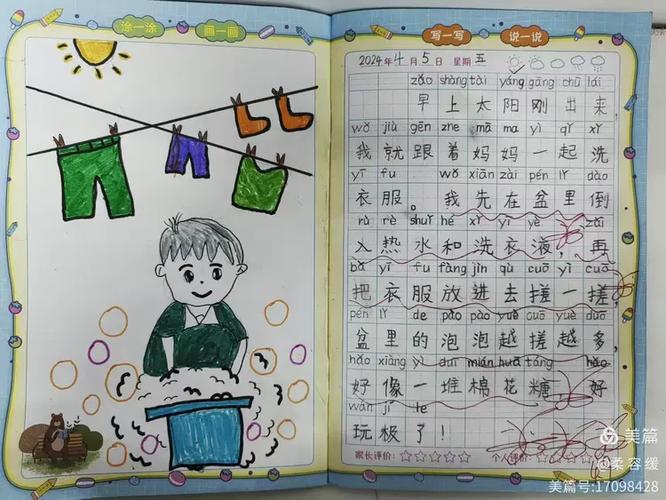 涂一涂 画一画
写一写 说一说
2024年4月5日 星期五
zǎo shàng tài yáng gāng chū lái
早上太阳刚出来，
wǒ jiù gēn zhe mā ma yì qǐ xǐ
我就跟着妈妈一起洗
yī fu wǒ xiān zài pén lǐ dào
衣服。我先在盆里倒
rù rè shuǐ hé xǐ yī yè zài
入热水和洗衣液，再
bǎ yī fu fàng jìn qù cuō yì cuō
把衣服放进去搓一搓
pén lǐ de pào pào yuè cuō yuè duō
盆里的泡泡越搓越多，
hǎo xiàng yì duī mián huā táng hǎo
好像一堆棉花糖，好
wán jí le
玩极了！
家长评价：☆☆☆☆☆ 个人评价：☆☆☆☆☆
美篇
@柔容缓
美篇号:17098428